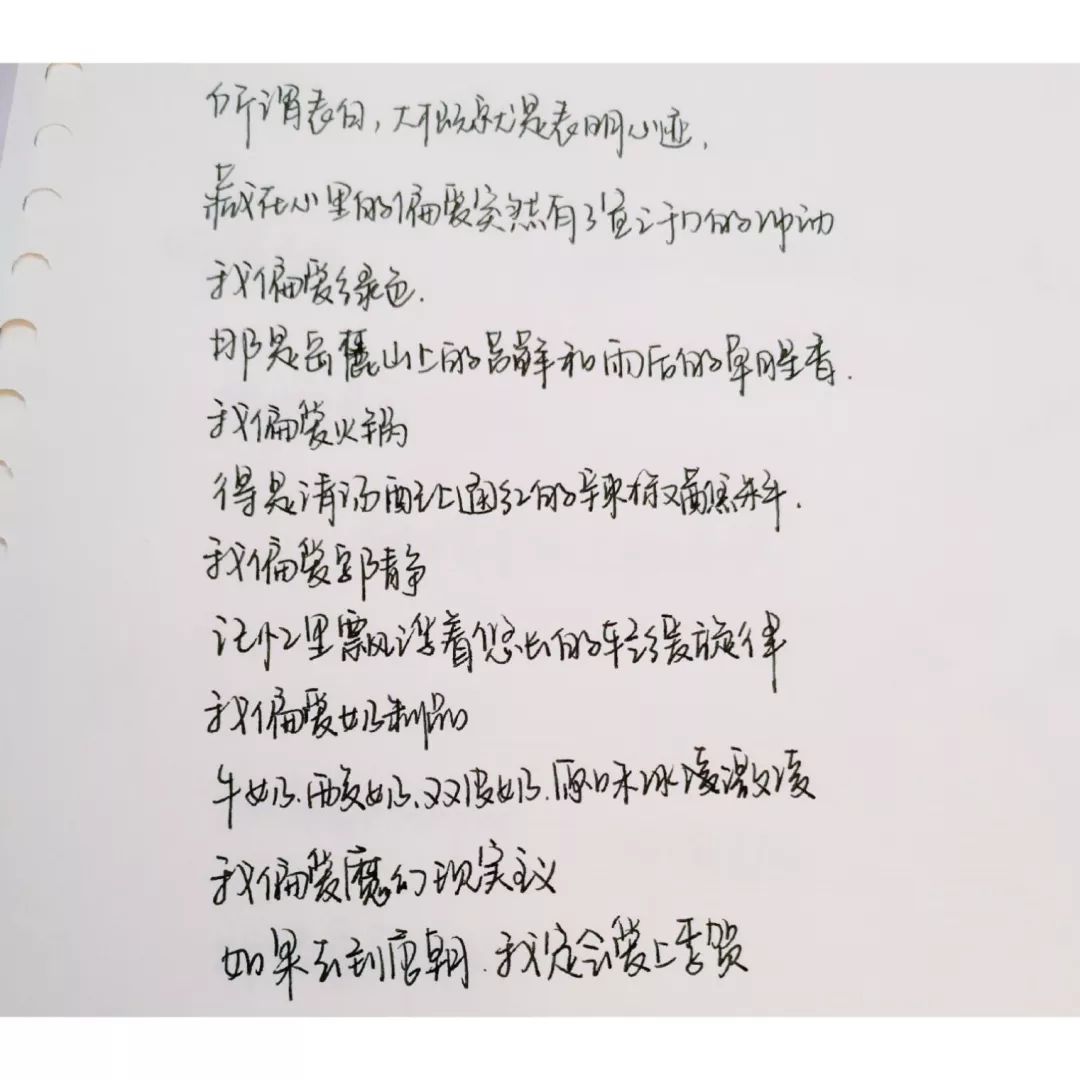 所谓表白,大概就是表明心迹.
藏在心里的偏爱突然有了宣之于口的冲动
我偏爱绿色.
那是岳麓山上的苔藓和雨后的草腥香.
我偏爱火锅
得是清汤配上通红的辣椒蘸料.
我偏爱郭静
记忆里飘荡着悠长的轻缓旋律
我偏爱奶制品
牛奶.酸奶.双皮奶.原味冰凌激凌
我偏爱魔幻现实主议
如果去到唐朝.我定会爱上李贺